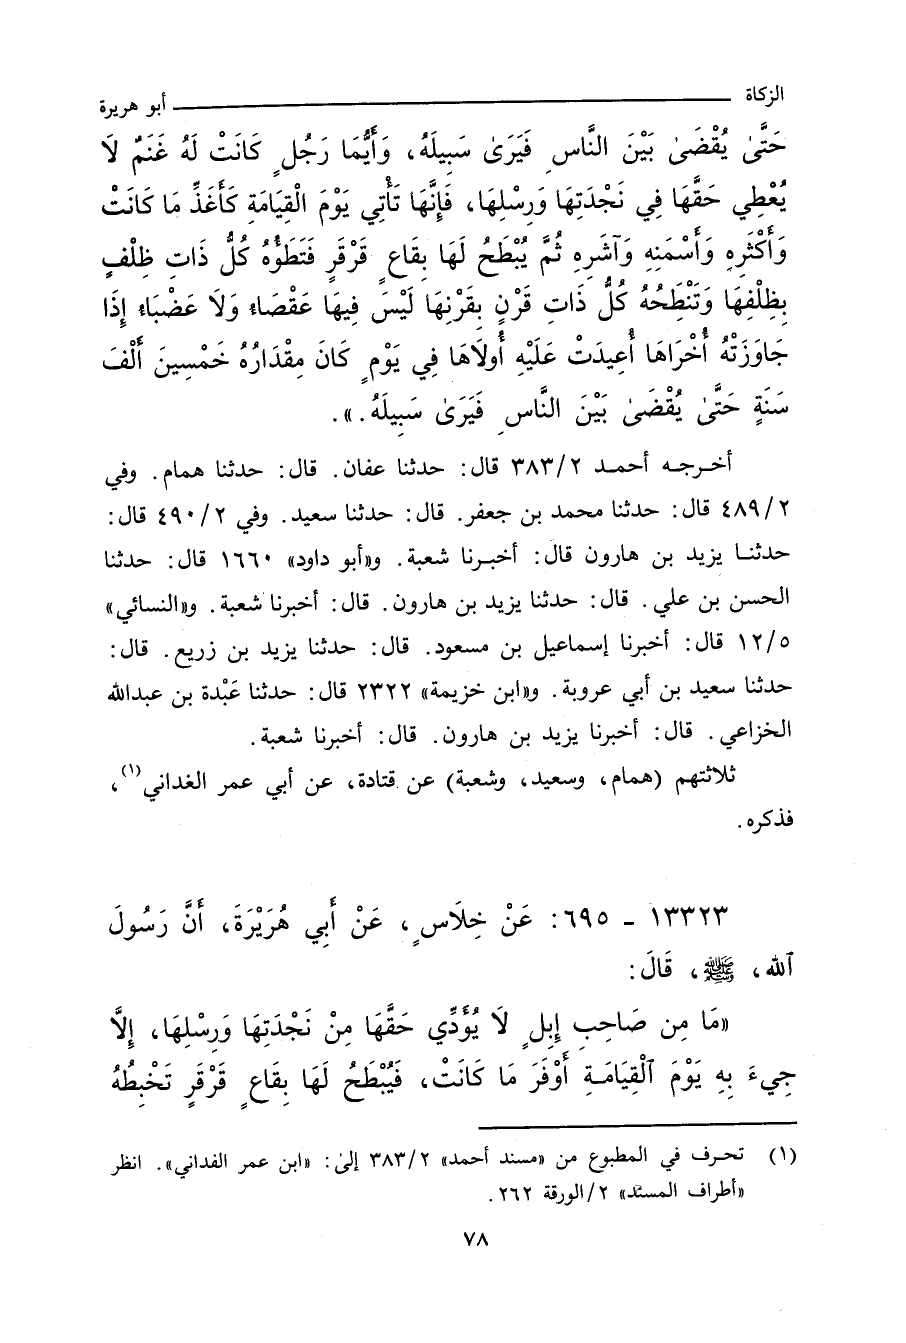 الزكاة أبو هريرة
حَتَّىٰ يُقْضَىٰ بَيْنَ النَّاسِ فَيَرَىٰ سَبِيلَهُ، وَأَيُّمَا رَجُلٍ كَانَتْ لَهُ غَنَمٌ لَا
يُعْطِي حَقَّهَا فِي نَجْدَتِهَا وَرِسْلِهَا، فَإِنَّهَا تَأْتِي يَوْمَ الْقِيَامَةِ كَأَغَذِّ مَا كَانَتْ
وَأَكْثَرِهِ وَأَسْمَنِهِ وَآشَرِهِ ثُمَّ يُبْطَحُ لَهَا بِقَاعٍ قَرْقَرٍ فَتَطَؤُهُ كُلُّ ذَاتِ ظِلْفٍ
بِظِلْفِهَا وَتَنْطَحُهُ كُلُّ ذَاتِ قَرْنٍ بِقَرْنِهَا لَيْسَ فِيهَا عَقْصَاءُ وَلَا عَضْبَاءُ إِذَا
جَاوَزَتْهُ أُخْرَاهَا أُعِيدَتْ عَلَيْهِ أُولَاهَا فِي يَوْمٍ كَانَ مِقْدَارُهُ خَمْسِينَ أَلْفَ
سَنَةٍ حَتَّىٰ يُقْضَىٰ بَيْنَ النَّاسِ فَيَرَىٰ سَبِيلَهُ.».
أخرجه أحمد ٣٨٣/٢ قال: حدثنا عفان. قال: حدثنا همام. وفي
٤٨٩/٢ قال: حدثنا محمد بن جعفر. قال: حدثنا سعيد. وفي ٤٩٠/٢ قال:
حدثنا يزيد بن هارون قال: أخبرنا شعبة. و«أبو داود» ١٦٦٠ قال: حدثنا
الحسن بن علي. قال: حدثنا يزيد بن هارون. قال: أخبرنا شعبة. و«النسائي»
١٢/٥ قال: أخبرنا إسماعيل بن مسعود. قال: حدثنا يزيد بن زريع. قال:
حدثنا سعيد بن أبي عروبة. و«ابن خزيمة» ٢٣٢٢ قال: حدثنا عَبْدة بن عبدالله
الخزاعي. قال: أخبرنا يزيد بن هارون. قال: أخبرنا شعبة.
ثلاثتهم (همام، وسعيد، وشعبة) عن قتادة، عن أبي عمر الغداني(١)،
فذكره.
١٣٣٢٣ - ٦٩٥: عَنْ خِلَاسٍ، عَنْ أَبِي هُرَيْرَةَ، أَنَّ رَسُولَ
ٱلله، ﷺ، قَالَ:
«مَا مِن صَاحِبِ إِبِلٍ لَا يُؤَدِّي حَقَّهَا مِنْ نَجْدَتِهَا وَرِسْلِهَا، إِلَّا
جِيءَ بِهِ يَوْمَ ٱلْقِيَامَةِ أَوْفَرَ مَا كَانَتْ، فَيُبْطَحُ لَهَا بِقَاعٍ قَرْقَرٍ تَخْبِطُهُ
(١) تحرف في المطبوع من «مسند أحمد» ٣٨٣/٢ إلىٰ: «ابن عمر الفداني». انظر
«أطراف المسند» ٢/الورقة ٢٦٢.
٧٨